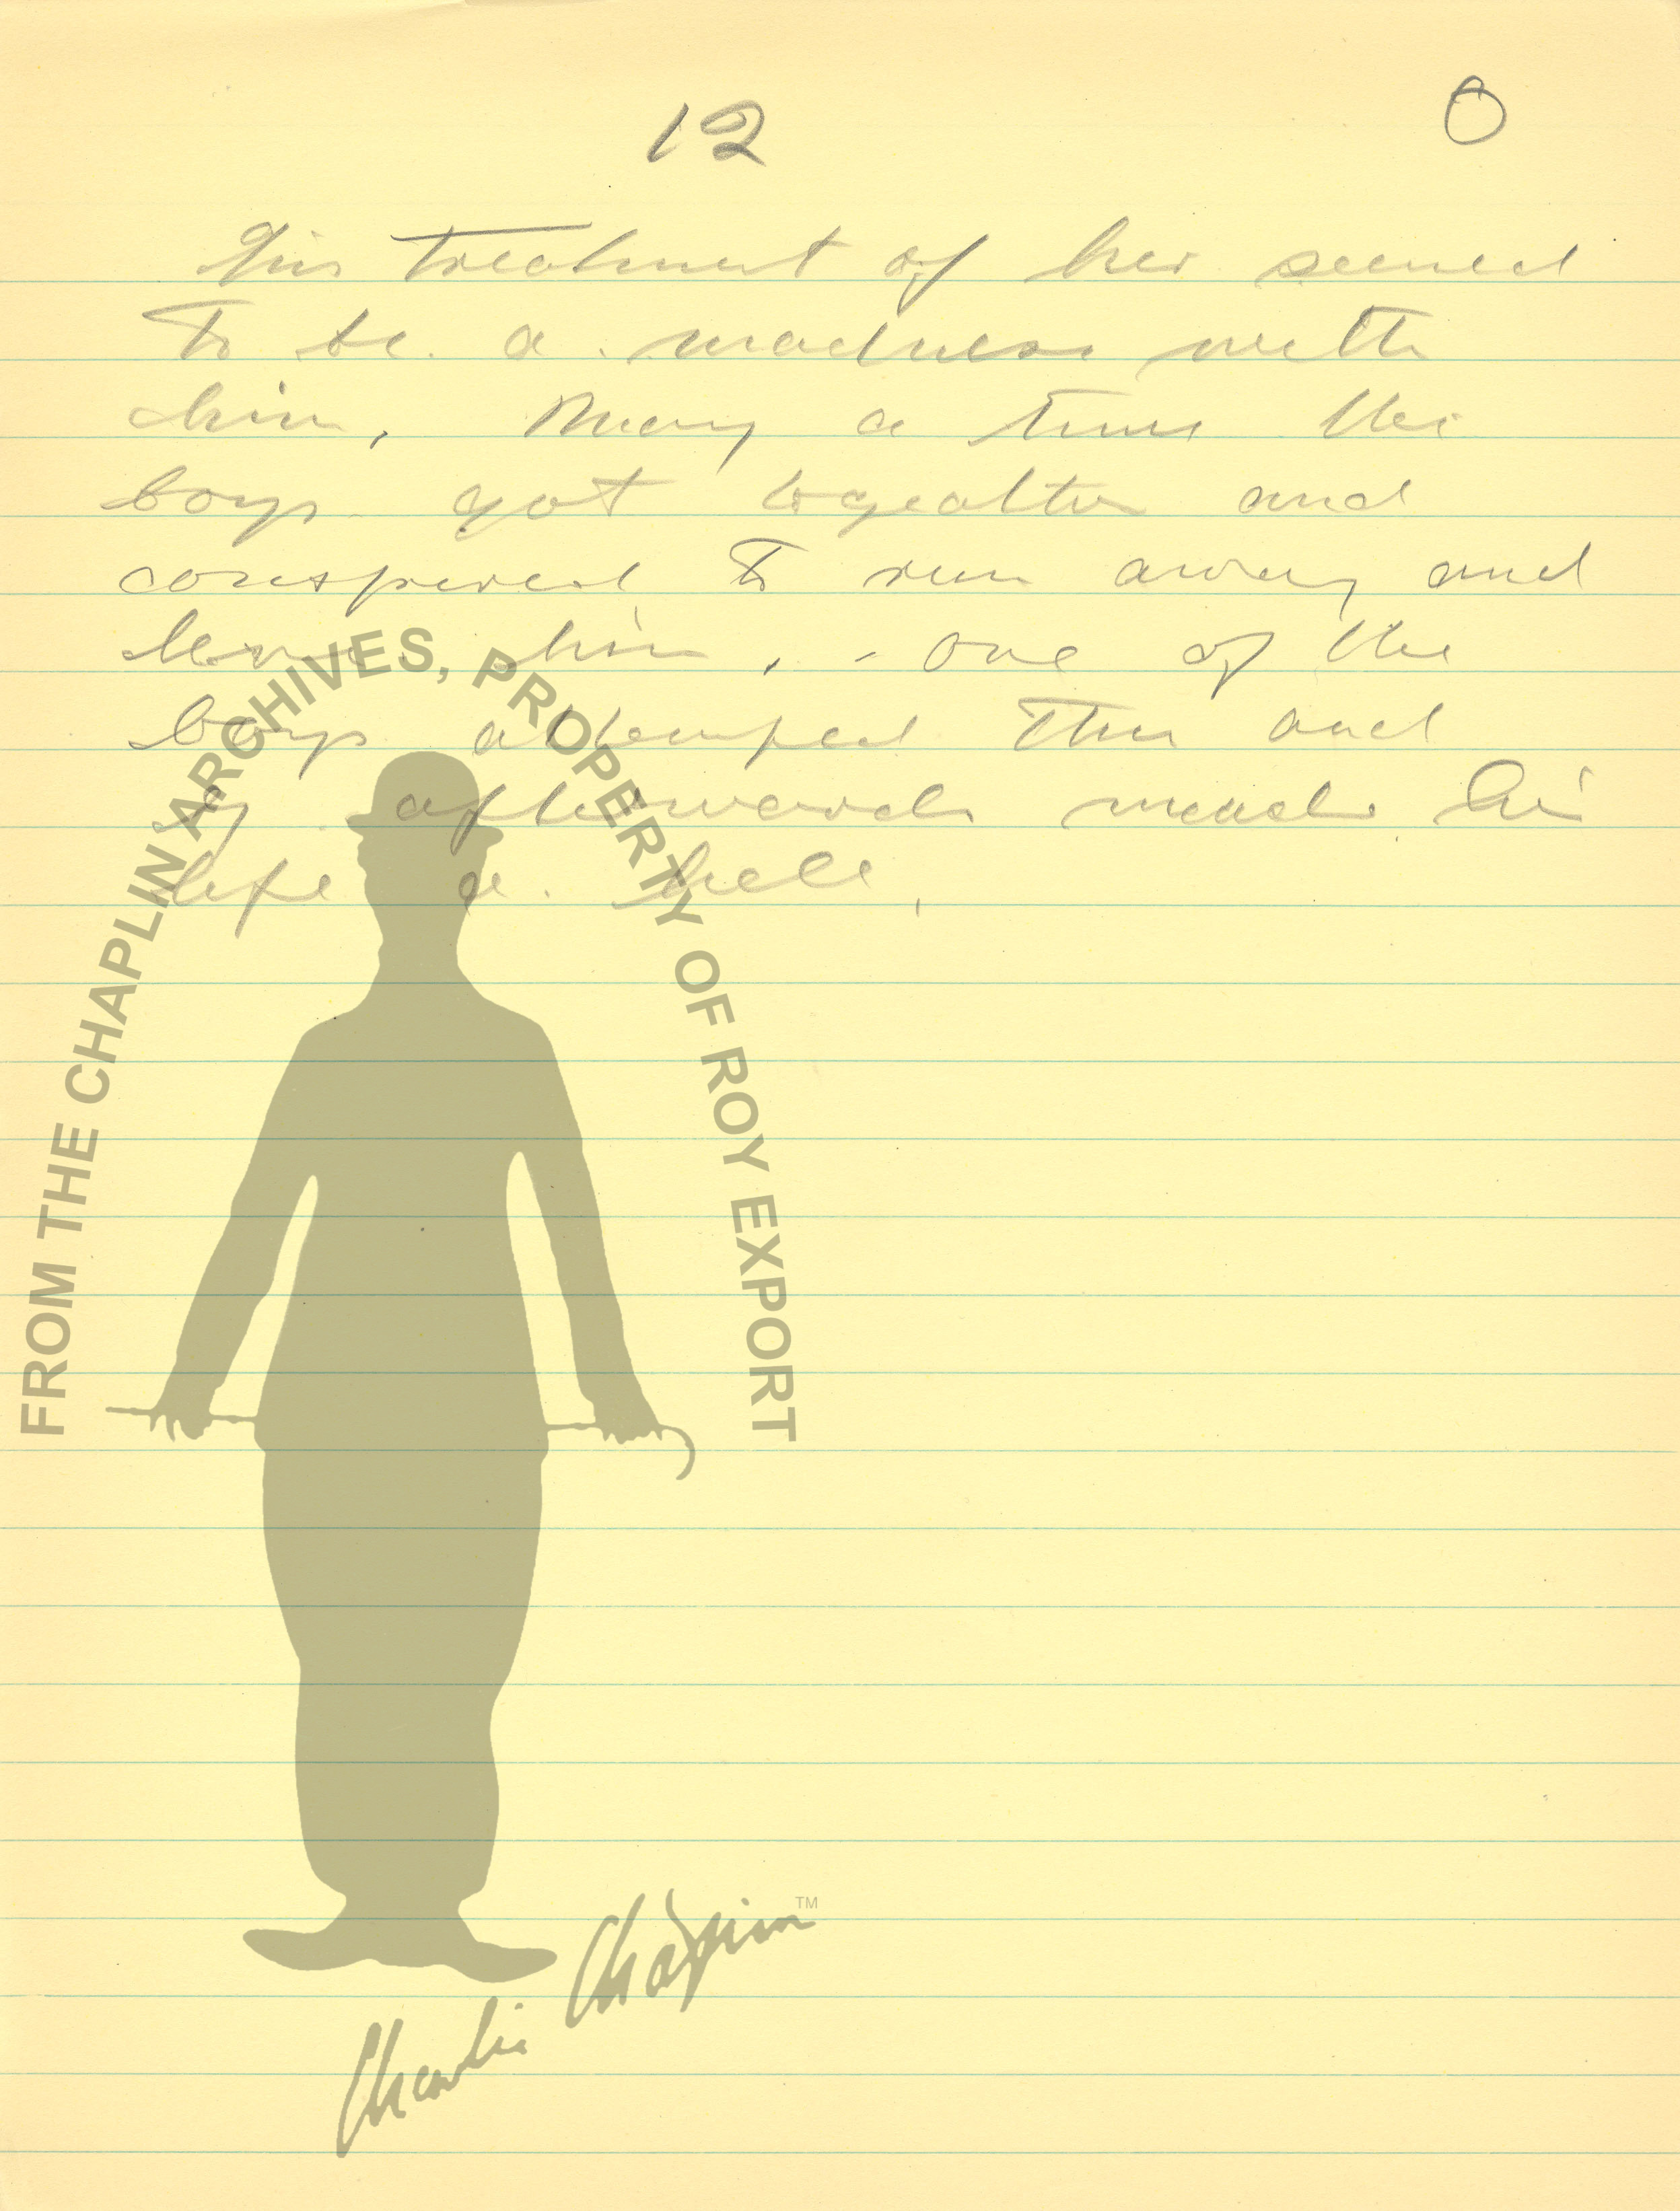 12
O
His treatment of her seemed
to be a madness with
him, Many a time the
boys got togeather and
conspired to run away and
leave him, - one of the
boys attemped this and
afterwards made his
life a hell,
FROM THE CHAPLIN ARCHIVES, PROPERTY OF ROY EXPORT
Charlie Chaplin TM